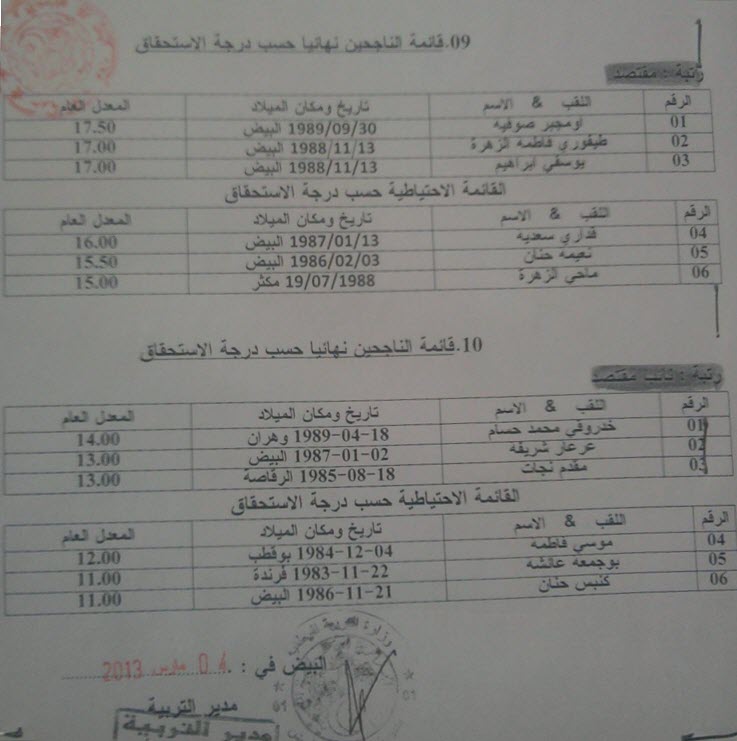 09.قائمة الناجحين نهائيا حسب درجة الاستحقاق
رتبة : مقتصد
الرقم اللقب & الاسم تاريخ ومكان الميلاد المعدل العام
01 اومجبر صوفيه 1989/09/30 البيض 17.50
02 طيفوري فاطمه الزهرة 1988/11/13 البيض 17.00
03 يوسفي ابراهيم 1988/11/13 البيض 17.00
القائمة الاحتياطية حسب درجة الاستحقاق
الرقم اللقب & الاسم تاريخ ومكان الميلاد المعدل العام
04 قداري سعديه 1987/01/13 البيض 16.00
05 نعيمه حنان 1986/02/03 البيض 15.50
06 ماحي الزهرة 19/07/1988 مكثر 15.00
10.قائمة الناجحين نهائيا حسب درجة الاستحقاق
رتبة : نائب مقتصد
الرقم اللقب & الاسم تاريخ ومكان الميلاد المعدل العام
01 خدروفي محمد حسام 1989-04-18 وهران 14.00
02 عرعار شريفه 1987-01-02 البيض 13.00
03 مقدم نجات 1985-08-18 الرقاصة 13.00
القائمة الاحتياطية حسب درجة الاستحقاق
الرقم اللقب & الاسم تاريخ ومكان الميلاد المعدل العام
04 موسي فاطمه 1984-12-04 بوقطب 12.00
05 بوجمعه عائشه 1983-11-22 فرندة 11.00
06 كنبس حنان 1986-11-21 البيض 11.00
البيض في : 04 مارس 2013
مدير التربية
مدير التربية